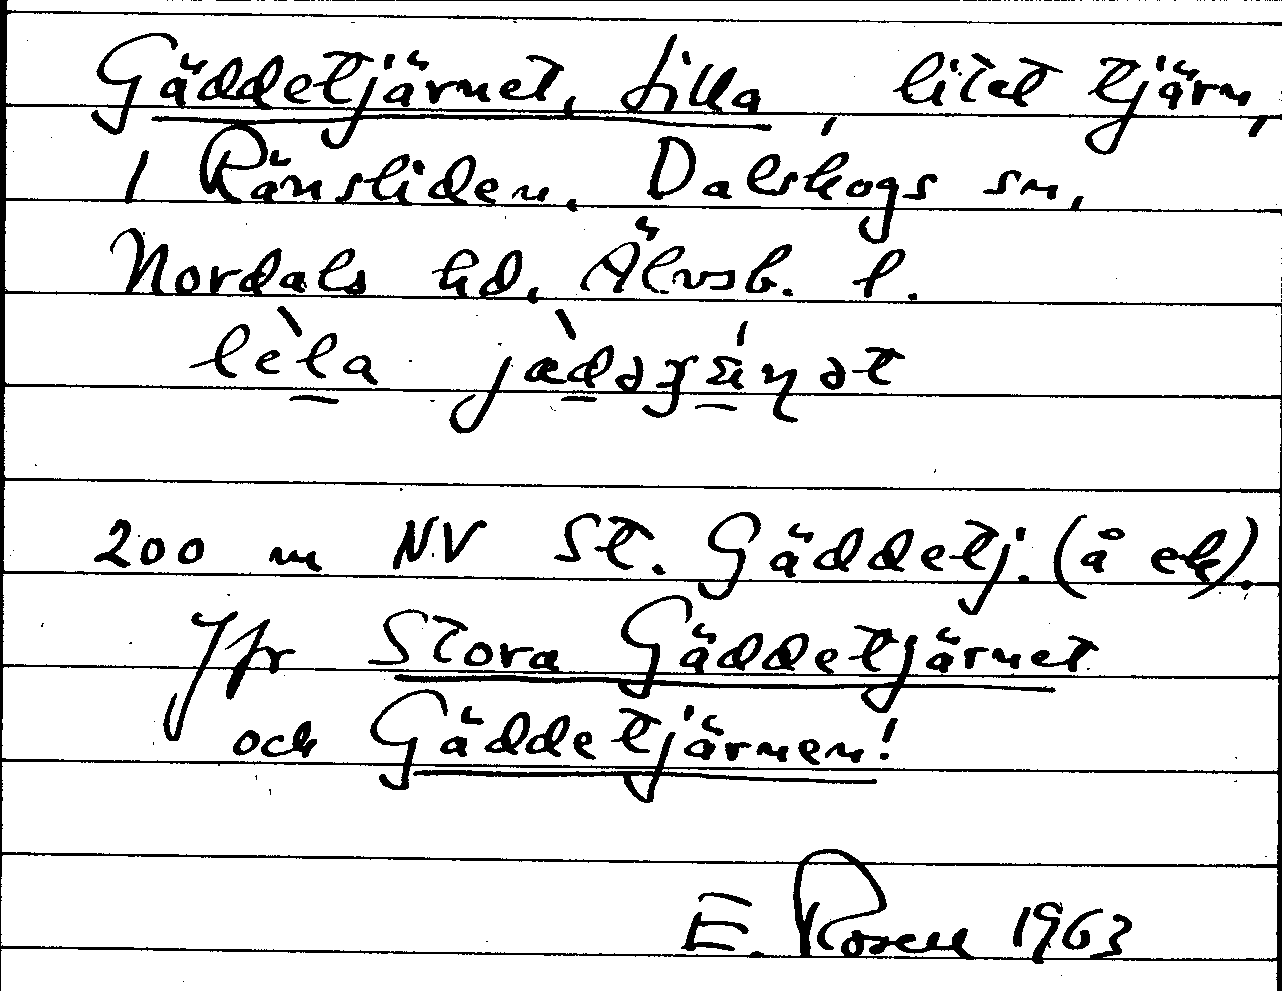 Gäddetjärnet, Lilla, litet tjärn,
1 Ränsliden, Dalskogs sn,
Nordals hd, Älvsb. l.
200 m NV St. Gäddetj. (å ek).
Jfr Stora Gäddetjärnet
och Gäddetjärnen!
E. Rosell 1963